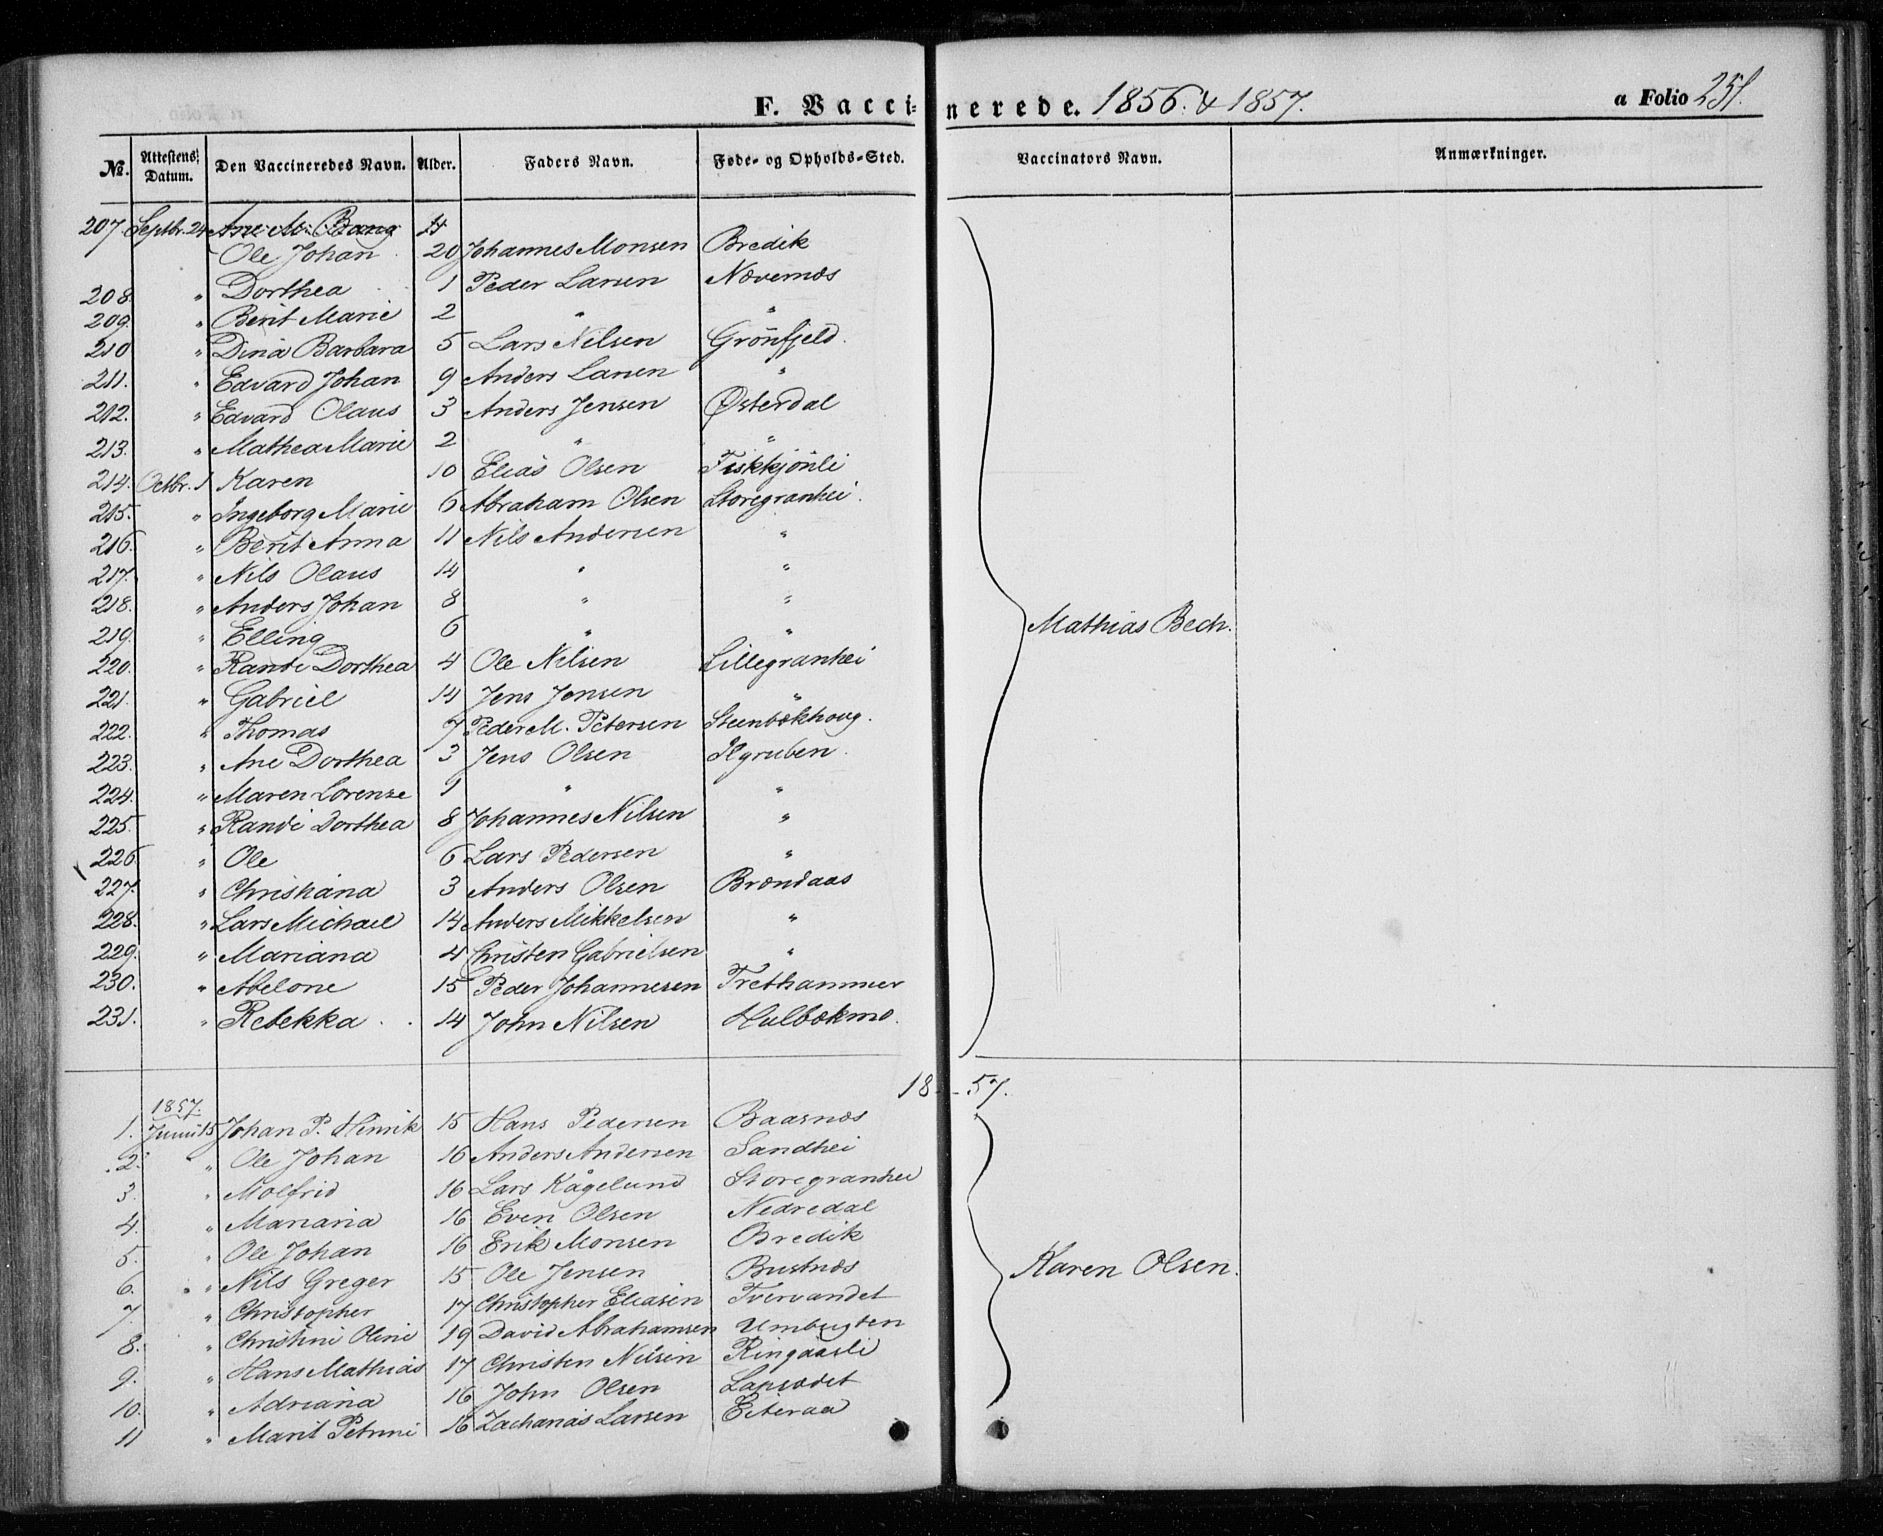 F. Vaccinerede. 1856. & 1857. a Folio 251.
No. Attestens Datum. Den Vaccineredes Navn. Alder. Faders Navn. Føde- og Opholds-Sted. Vaccinators Navn. Anmærkninger.
207. Septbr. 24 Ane M. Bang 14
Ole Johan 20 Johannes Monsen Bredik
208. " Dorthea 1 Peder Larsen Nævernæs
209. " Berit Marie 2 " "
210 " Dina Barbara 5 Lars Nilsen Grönfjeld.
211. " Edvard Johan 9 Anders Larsen "
212. " Edvard Olaus 3 Anders Jensen Østerdal
213. " Mathea Marie 2 " "
214. Octbr. 1 Karen 10 Elias Olsen Fiskkjönli
215. " Ingeborg Marie 6 Abraham Olsen Storegranhei.
216. " Berit Anna 11 Nils Andersen "
217. " Nils Olaus 14 " "
218. " Anders Johan 8 " "
Mathias Bech.
219. " Elling 6 " "
220. " Randi Dorthea 4 Ole Nilsen Lillegranhei
221. " Gabriel 14 Jens Jonsen "
222. " Thomas 7 Peder M. Petersen Steenbækhoug.
223. " Ane Dorthea 3 Jens Olsen Ilgruben.
224. " Maren Lorense 1 " "
225. " Randi Dorthea 8 Johannes Nilsen "
226. " Ole 6 Lars Pedersen "
227. " Christiana 3 Anders Olsen Brændaas
228. " Lars Michael 14 Anders Mikkelsen "
229. " Mariana 4 Christen Gabrielsen "
230. " Abelone 15 Peder Johannesen Trethammer
231. " Rebekka 14 John Nilsen Hulbækmo.
18--57.
1857.
1. Junii 15 Johan P. Hinrik 15 Hans Pedersen Baasnæs
2. " Ole Johan 16 Anders Andersen Sandhei
3. " Molfrid 16 Lars Kågelund Storegranhei
4. " Mariana 16 Even Olsen Nedredal
5. " Ole Johan 16 Erik Monsen Bredik
6. " Nils Greger 15 Ole Jensen Bustnæs
Karen Olsen.
7. " Christopher 17 Christopher Eliasen Tvervandet
8. " Christine Oline 19 David Abrahamsen Umbugten
9. " Hans Mathias 17 Christen Nilsen Ringaasli
10. " Adriana 16 John Olsen Lapsødet
11 " Marit Petrine 16 Zacharias Larsen Eiteraa